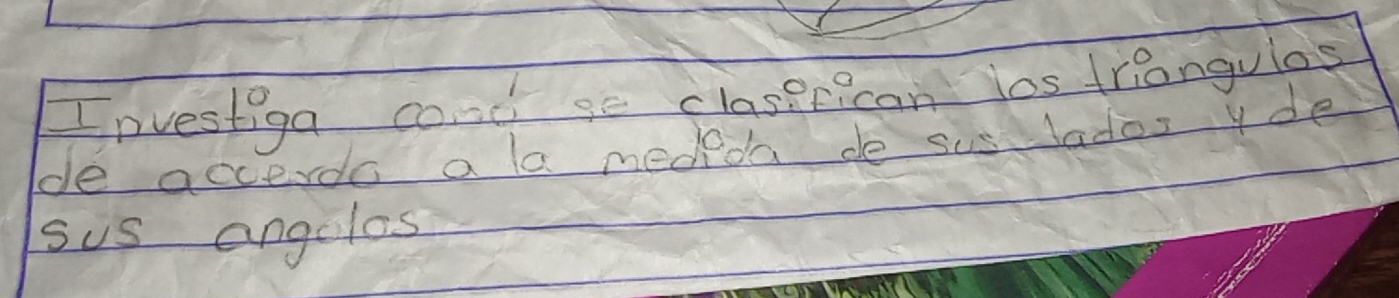 Investiga comó se clasifican los triangulos
de accerdo a la medida de sus lados y de
sus angulos